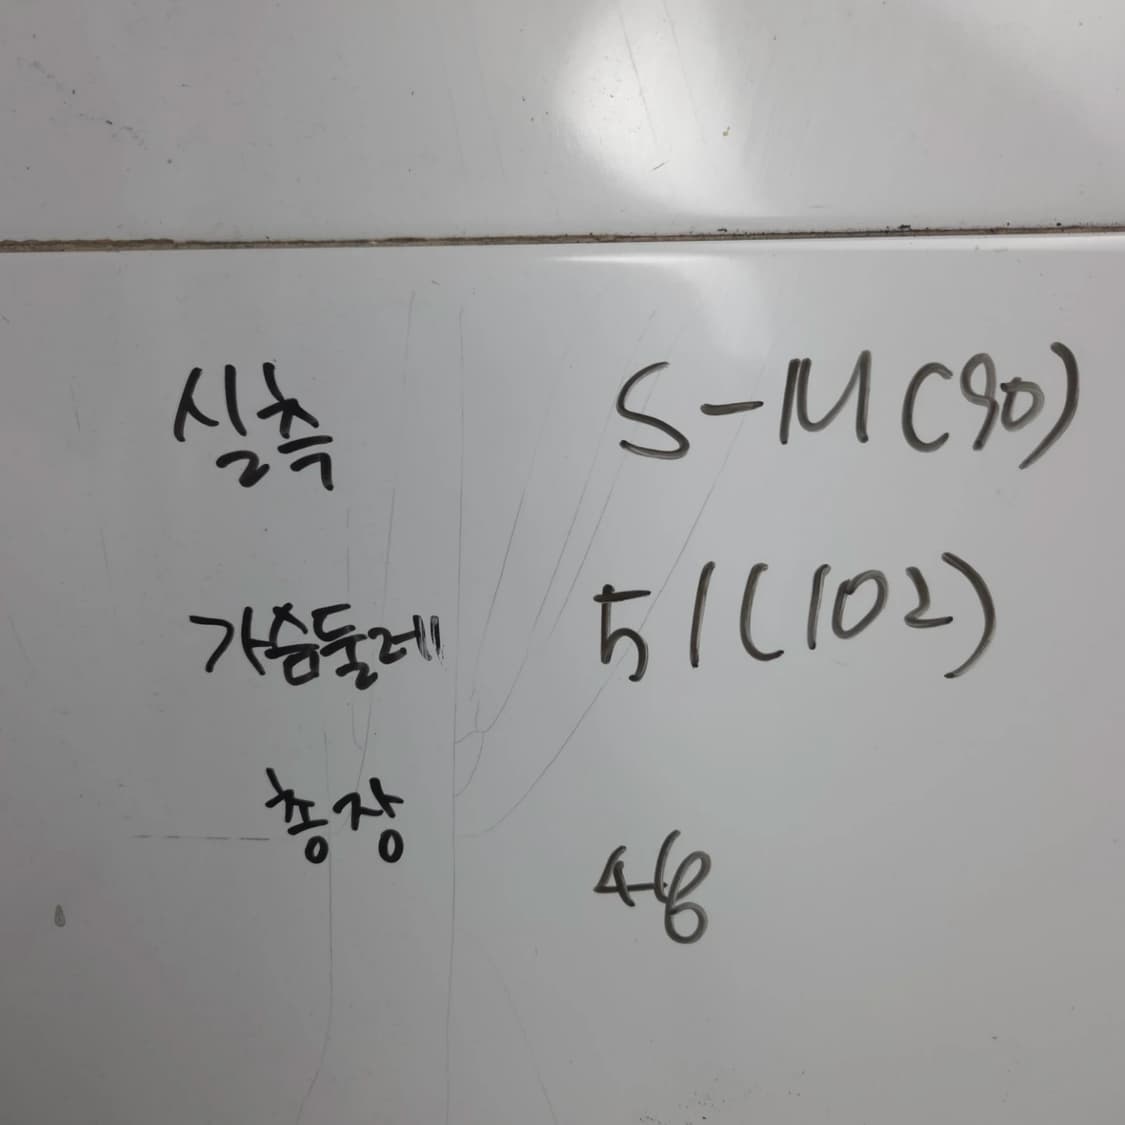 실측 S-M(90)
가슴둘레 51(102)
총장 48